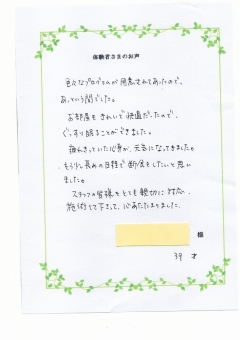 体験者さまのお声
色んなプログラムが用意されてあったので、
あっという間でした。
お部屋もきれいで快適だったので、
ぐっすり眠ることができました。
疲れきっていた心身が、元気になってきました。
もう少し長めの日程で断食をしたいと思い
ました。
スタッフの皆様もとても親切に対応、
施術して下さって、心あたたまりました。
様
39 才